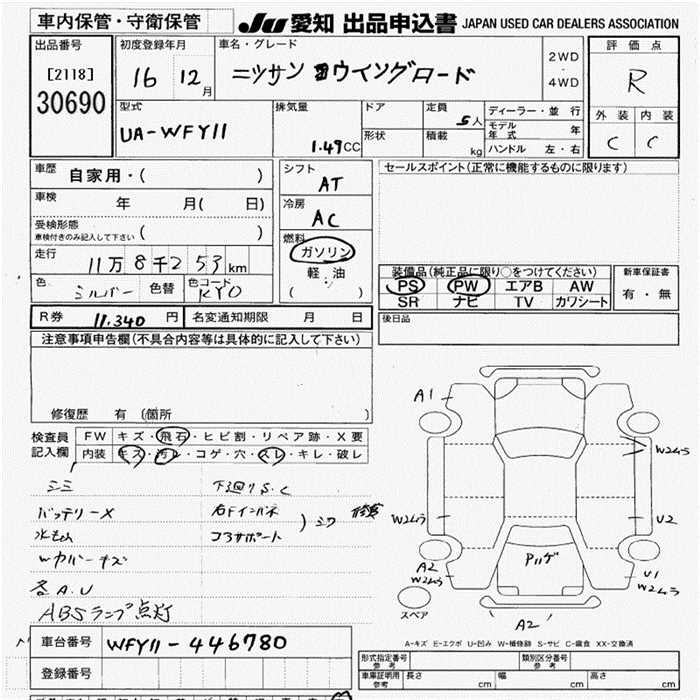 車内保管・守衛保管 JU愛知 出品申込書 JAPAN USED CAR DEALERS ASSOCIATION
出品番号 初度登録年月 車名・グレード 2WD・4WD 評価点
[2118] 16 12月 ニッサン ウイングロード R
30690 型式 排気量 ドア 定員 5人 ディーラー・並行 外装 内装
モデル年式 年 C C
UA-WFY11 1.49CC 形状 積載 kg ハンドル 左・右
車歴 自家用・( ) シフト AT セールスポイント(正常に機能するものに限ります)
車検 年 月( 日) 冷房 AC
受検形態 車検付きのみ記入して下さい ( ) 燃料
走行 11万8千253km ガソリン 装備品(純正品に限り○をつけてください) 新車保証書
軽・油 PS PW エアB AW 有・無
色 シルバー 色替 色コード KY0 ( ) SR ナビ TV カワシート
R券 11,340円 名変通知期限 月 日 後日品
注意事項申告欄(不具合内容等は具体的に記入して下さい)
修復歴 有(箇所 )
検査員記入欄 FW キズ・飛石・ヒビ割・リペア跡・X要
内装 キズ・汚レ・コゲ・穴・スレ・キレ・破レ
下廻りS.C
バッテリーX 右Fインパネ
コアサポート
Wカバーキズ
各A.U
ABSランプ点灯
A1
W2ムラ
W2ムラ U2
A2 W2ムラ U1 W2ムラ
スペア A2
A-キズ E-エクボ U-凹み W-補修跡 S-サビ C-腐食 XX-交換済
車台番号 WFY11-446780
形式指定番号 参考 類別区分番号 参考
登録番号 車庫証明用 参考 長さ cm 幅 cm 高さ cm